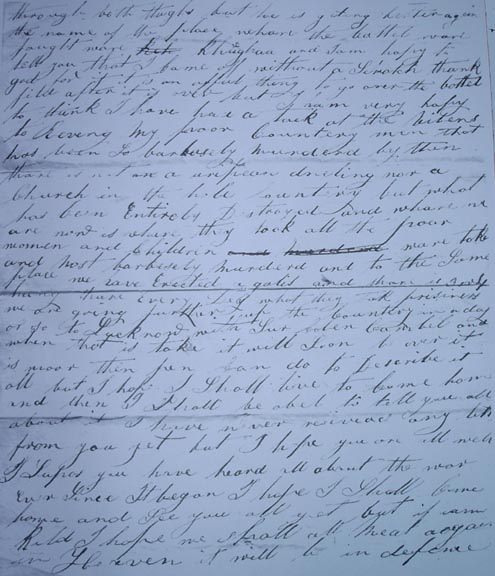 through both thighs but he is geting better again
the name of the place whare the battel was
faught ware Khughaa and I am hapy to
tell you that I came of without a Scratch thank
god for it it is an afful thing to go over the battel
fild after it is over but I am very hapy
to think I have had a luck at the
to reveng my poor Countery men that
has been So barbasely murderd by them
thare is not one a uropean dweling nor a
Church in the hole Countery but what
has been Entirely Distroyed and whare we
are now is where they took all the poor
women and Children ware take
and most barbasely murderd and to the Same
place we have Erected a galos and thare is
hung thare Every Day what they tak prisiners
we are going further up the Countery in a day
or so to Lucknow with Sur Colen Cambel and
when that is take it will Soon be over it
is moor then pen Can do to Describe it
all but I hope I Shall live to Come home
and then I Shall be abel to tell you all
about it I have never receved any
from you yet but I hope you are all well
I Supos you have heard all about the war
Ever Since It began I hope I Shall Come
home and See you all yet but if I am
Kild I hope we shall all meat aggain
in Heaven it will be in defence